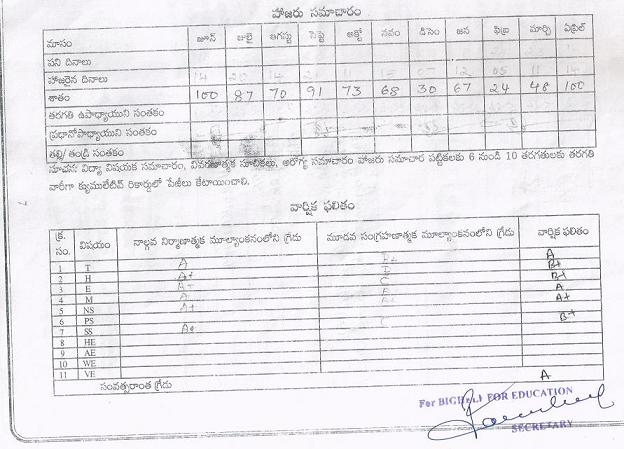 హాజరు సమాచారం
మాసం జూన్ జులై ఆగస్టు సెప్టె అక్టో నవం డిసెం జన ఫిబ్ర మార్చి ఏప్రిల్
పని దినాలు
హాజరైన దినాలు 14 20 14 11 12 05 11 14
శాతం 100 87 70 91 73 68 30 67 24 48 100
తరగతి ఉపాధ్యాయుని సంతకం
ప్రధానోపాధ్యాయుని సంతకం
తల్లి/తండ్రి సంతకం
సూచన: విద్యా విషయక సమాచారం, వివరణాత్మక సూచికలు, ఆరోగ్య సమాచారం హాజరు సమాచార పట్టికలకు 6 నుండి 10 తరగతులకు తరగతి
వారీగా క్యుములేటివ్ రికార్డులో పేజీలు కేటాయించాలి.
7
వార్షిక ఫలితం
క్ర. సం. విషయం నాల్గవ నిర్మాణాత్మక మూల్యాంకనంలోని గ్రేడు మూడవ సంగ్రహణాత్మక మూల్యాంకనంలోని గ్రేడు వార్షిక ఫలితం
1 T A B+ A
2 H A+ B+
3 E A+ C B+
4 M A A
5 NS A+ A+
6 PS C B+
7 SS A+
8 HE
9 AE
10 WE
11 VE
సంవత్సరాంత గ్రేడు A
For BIGHELP FOR EDUCATION
SECRETARY